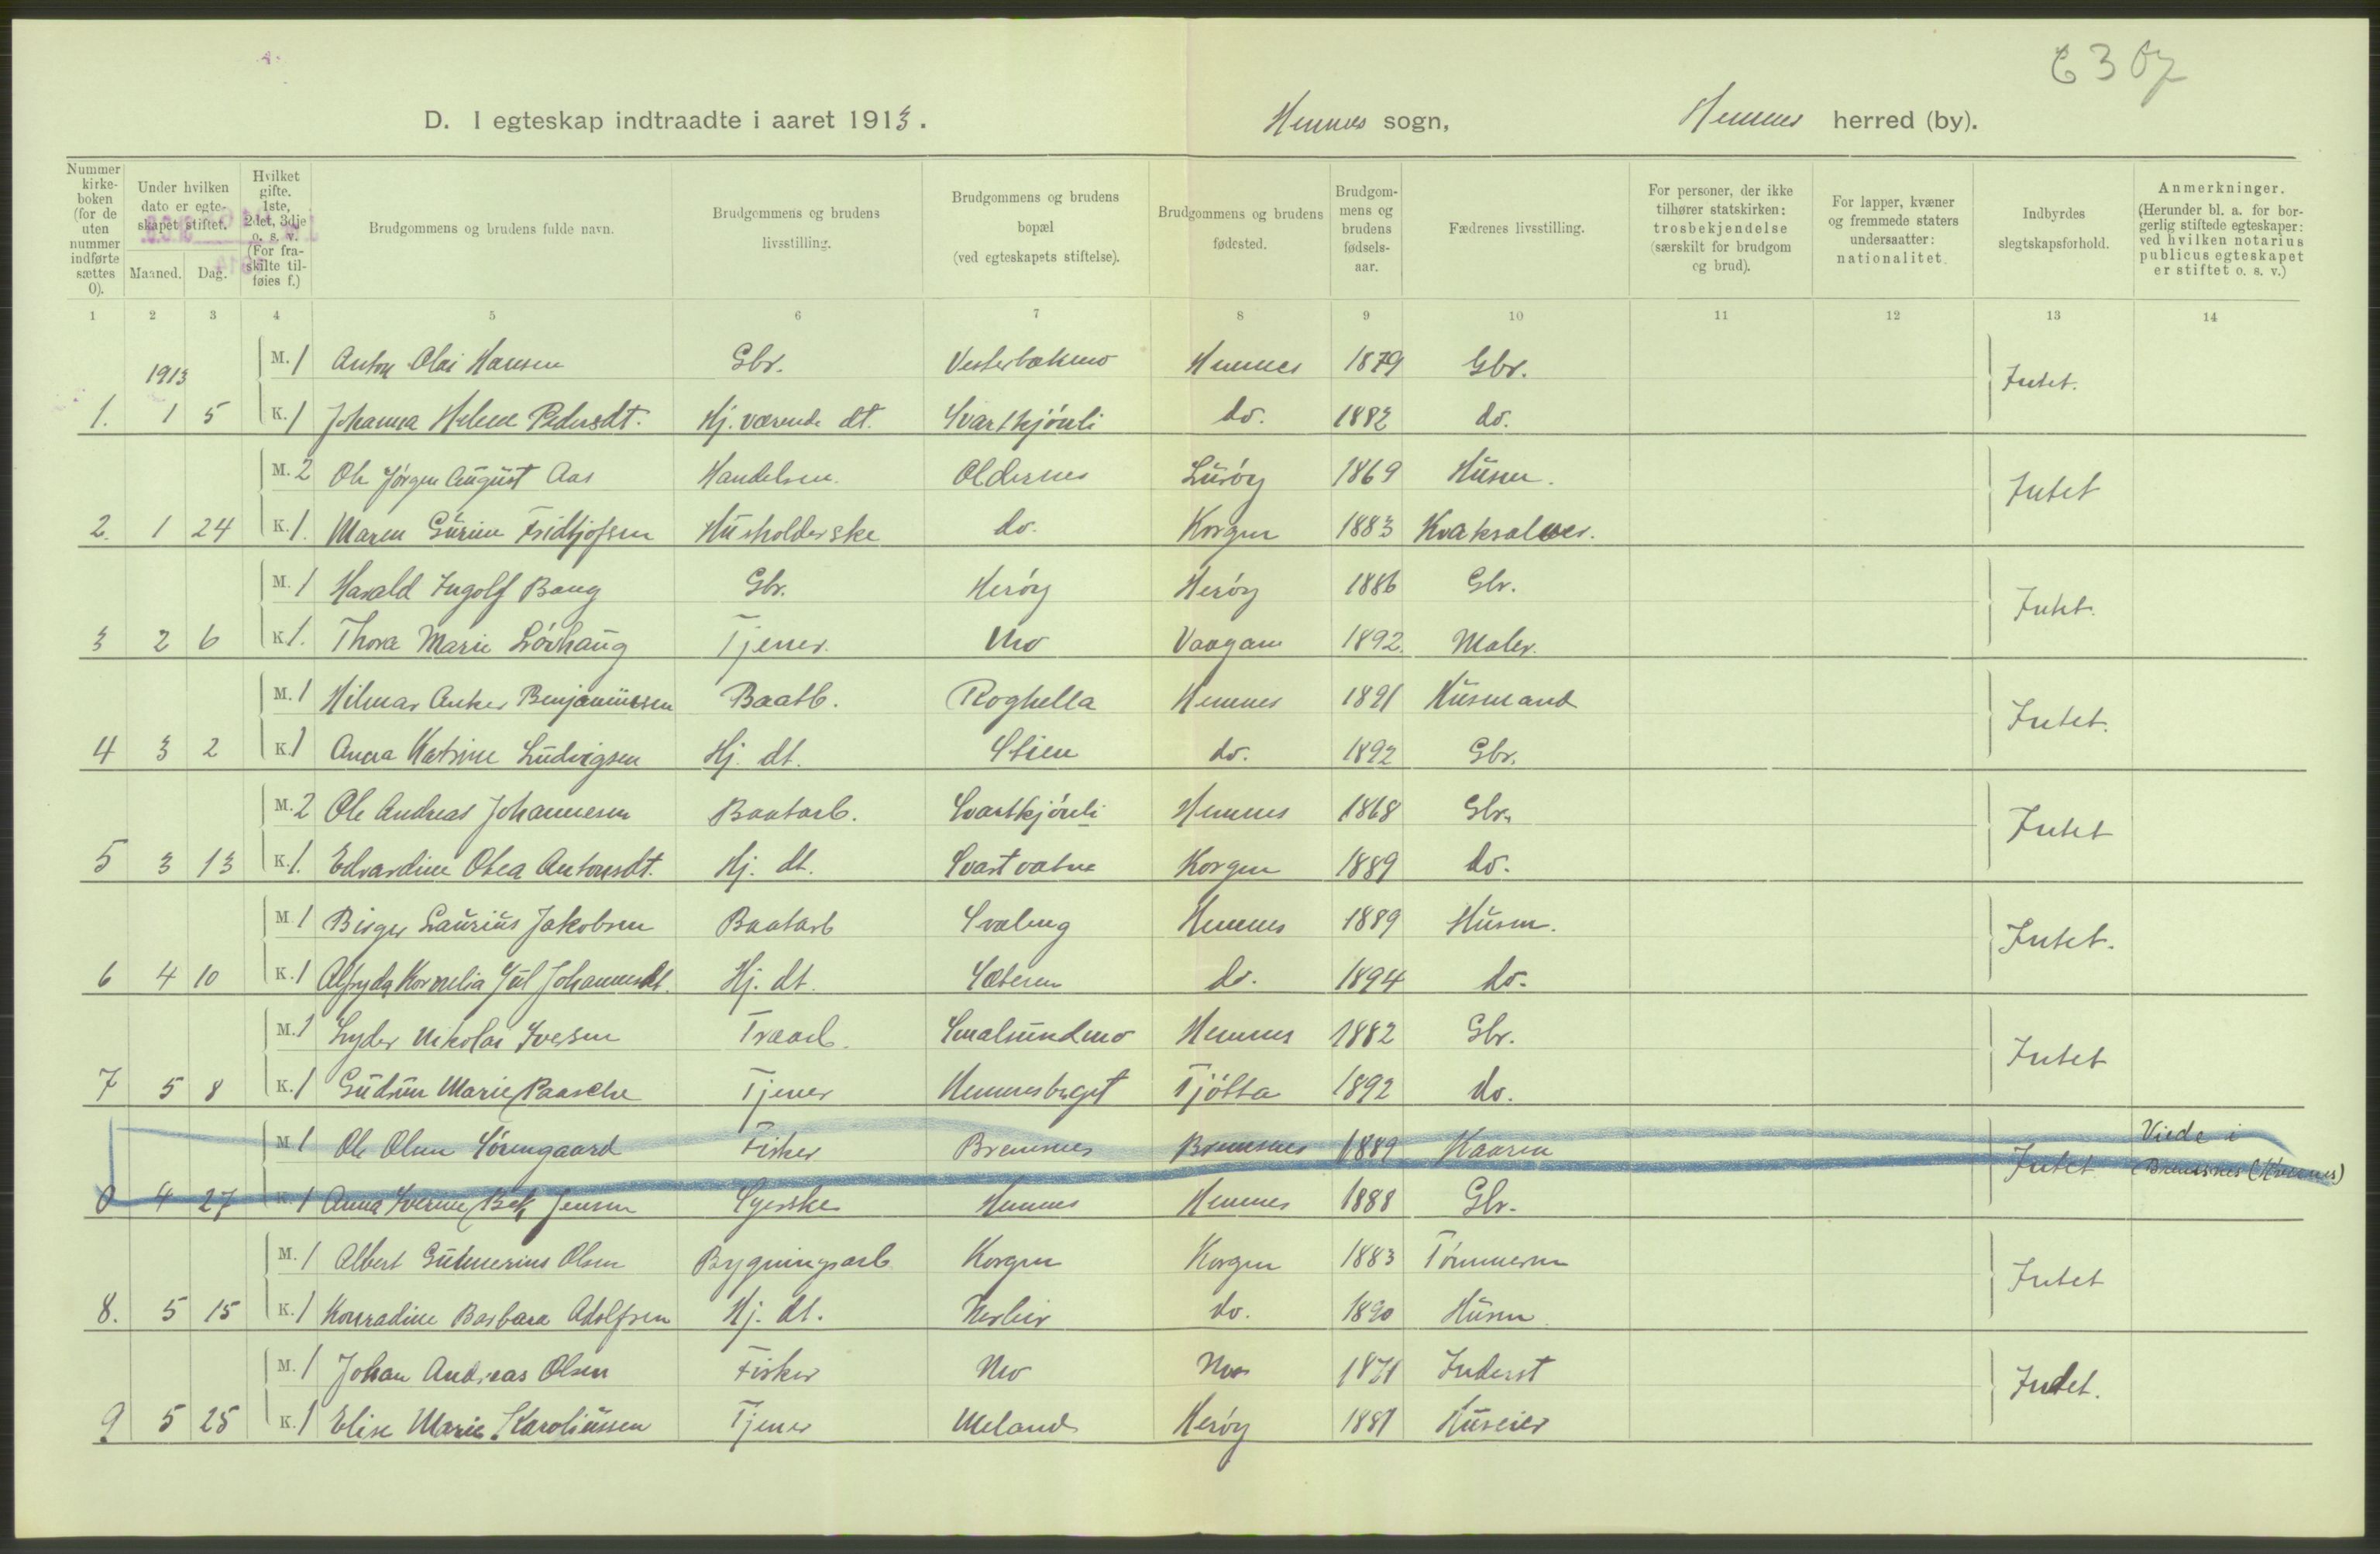 D. I egteskap indtraadte i aaret 1913. Hemnes sogn, Hemnes herred (by).
Nummer kirke-boken (for de uten nummer indførte sættes 0). Under hvilken dato er egte-skapet stiftet. Maaned. Dag. Hvilket gifte. 1ste, 2det, 3dje o. s. v. (For fra-skilte til-føies f.) Brudgommens og brudens fulde navn. Brudgommens og brudens livsstilling. Brudgommens og brudens bopæl (ved egteskapets stiftelse). Brudgommens og brudens fødested. Brudgom-mens og brudens fødsels-aar. Fædrenes livsstilling. For personer, der ikke tilhører statskirken: trosbekjendelse (særskilt for brudgom og brud). For lapper, kvæner og fremmede staters undersaatter: nationalitet. Indbyrdes slegtskapsforhold. Anmerkninger. (Herunder bl. a. for bor-gerlig stiftede egteskaper: ved hvilken notarius publicus egteskapet er stiftet o. s. v.)
1 2 3 4 5 6 7 8 9 10 11 12 13 14
1913 M. 1 Anton Olai Hansen Gbr. Hemnes 1879 Gbr. Intet.
1. 1 5 K. 1 Johanna Helene Pedersdt. Hj. værende dt. Svarttjønli do. 1882 do.
M. 2 Ole Jørgen August Aas Handelsm. Oldernes Lurøy 1869 Husm. Intet
2. 1 24 K. 1. Maren Gurine Fridtjofsen Husholderske do. Korgen 1883 Kvaksalver.
M. 1 Harald Ingolf Bang Gbr. Herøy Herøy 1886 Gbr. Intet.
3 2 6 K. 1. Thora Marie Løvhaug Tjener. Mo Vaagan 1892. Maler.
M. 1 Hilmar Anker Benjaminsen Baatb. Røghella Hemnes 1891 Husmand Intet.
4 3 2 K. 1 Anna Katrine Ludvigsen Hj. dt. Stien do. 1892 Gbr.
M. 2 Ole Andreas Johannesen Baatarb. Svarttjønli Hemnes 1868 Gbr. Intet
5 3 13 K. 1. Edvardine Olea Antonsdt. Hj. dt. Svartvatne Korgen 1889 do.
M. 1 Birger Laurius Jakobsen Baatarb Svaleng Hemnes 1889 Husm. Intet.
6 4 10 K. 1 Alfryda Kornelia Jul Johannesdt. Hj. dt. Sæteren do. 1894 do.
M. 1 Lyder Nikolai Iversen Træarb. Smalsundmo Hemnes 1882 Gbr. Intet
7 5 8 K. 1 Gudrun Marie Paasche Tjener Hemnesberget Tjøtta 1892 do.
M. 1 Ole Olsen Sørengaard Fisker Bremsnes Bremsnes 1889 Intet Viede i
0 4 27 K. 1 Anna Iverine Bek Jensen Syerske Hemnes Hemnes 1888 Gbr. Bremsnes
M. 1 Albert Gunnerius Olsen Bygningsarb Korgen Korgen 1883 Tømmerm Intet
8. 5 15 K. 1 Konradine Barbara Adolfsen Hj. dt. Nerleir do. 1890 Husm.
M. 1 Johan Andreas Olsen Fisker Mo Mo 1871 Inderst Intet.
9 5 25 K. 1 Elise Marie Karoliussen Tjener Meland Herøy 1881 Huseier